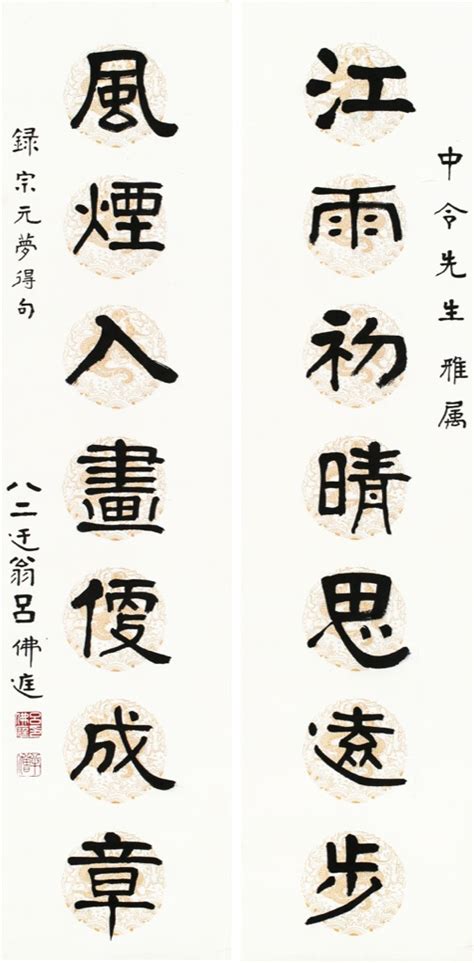 中令先生 雅属
江雨初晴思遠步
風煙入畫便成章
録宗元夢得句
八二迂翁呂佛庭